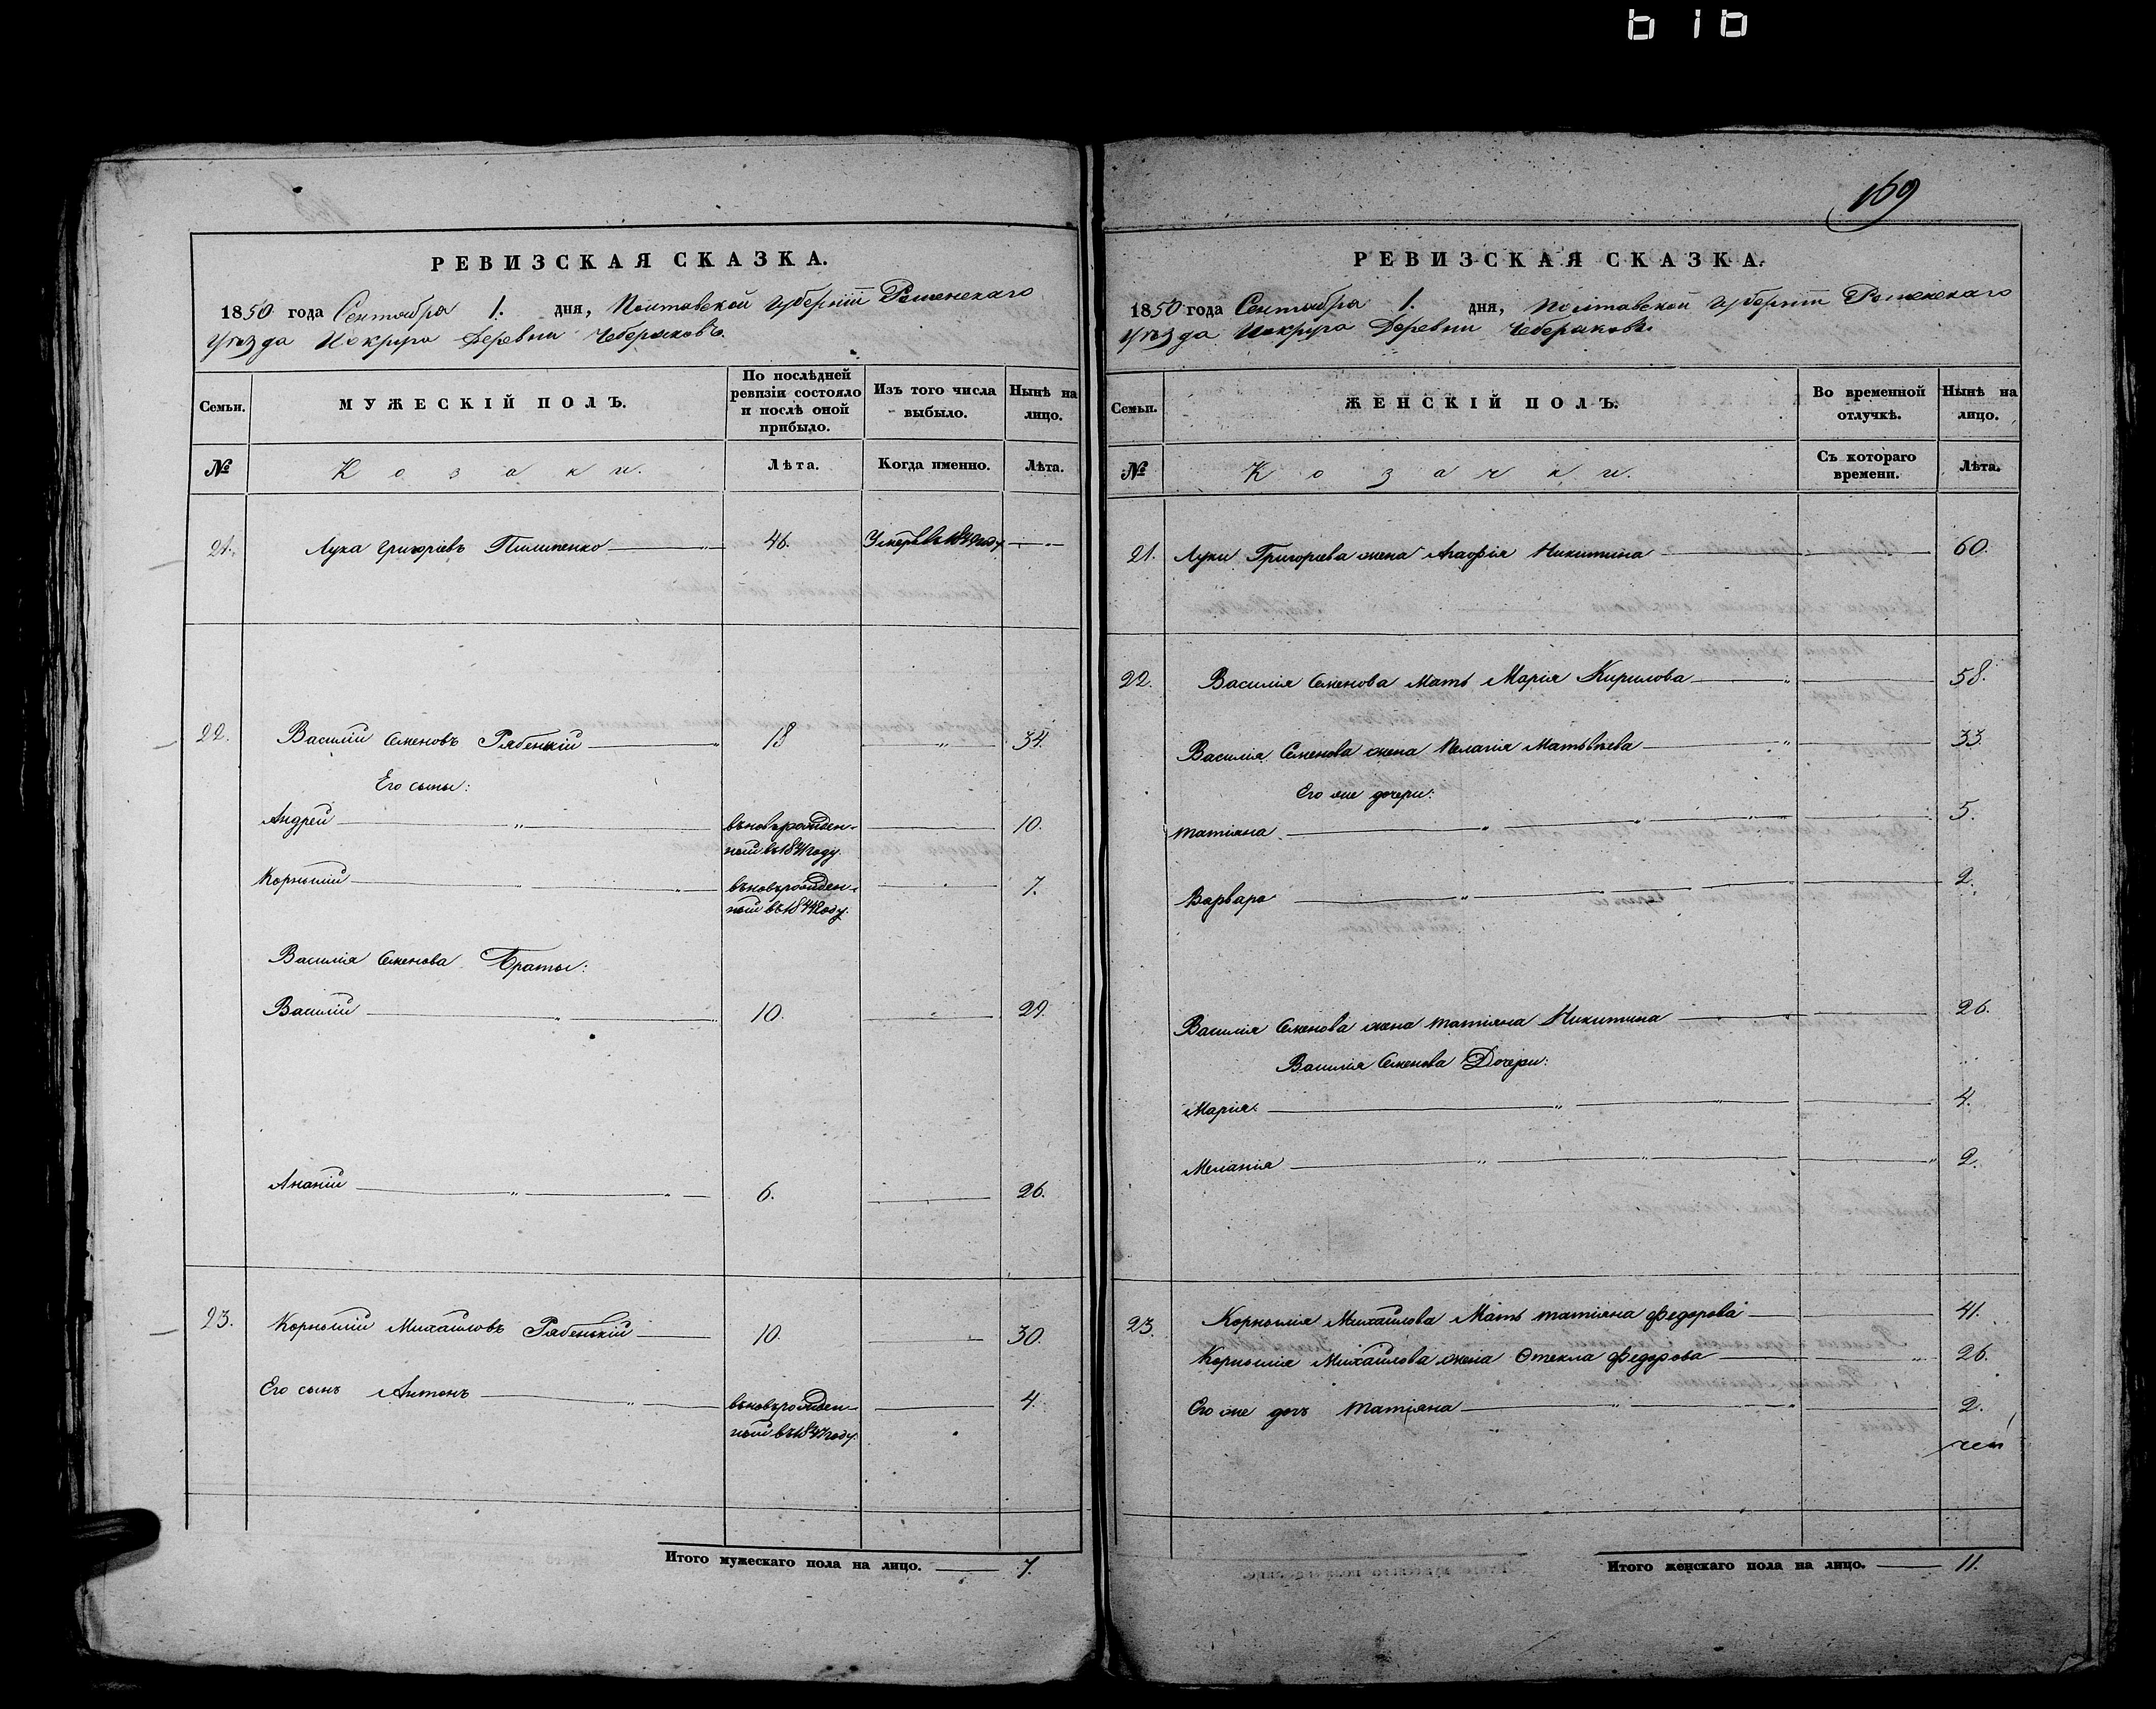 616
РЕВИЗСКАЯ СКАЗКА.
1850 года Сентября 1. дня, Полтавской Губерніи Роменскаго
Уѣзда Деревни
Семьи. МУЖЕСКІЙ ПОЛЪ. По послѣдней ревизіи состояло и послѣ оной прибыло. Изъ того числа выбыло. Нынѣ на лицо.
№ Козаки. Лѣта. Когда именно. Лѣта.
21. Лука Григоріевъ Пилипенко 46.
22. Василій Семеновъ Рябенкій 18 34.
Его сыны:
Андрей вновьрожден- 10.
ный въ 1841 году.
Корнилій вновьрожден- 7.
ный въ году.
Василія Семенова Браты:
Василій 10.
Ананій 6. 26.
23. Корнилій Михайловъ Рябенькій 10. 30.
Его сынъ Антонъ вновьрожден- 4.
ный въ 1847 году.
Итого мужескаго пола на лицо. 7.
169
РЕВИЗСКАЯ СКАЗКА.
1850 года Сентября 1. дня, Полтавской Губерніи Роменскаго
Уѣзда Деревни
Семьи. ЖЕНСКІЙ ПОЛЪ. Во временной отлучкѣ. Нынѣ на лицо.
№ Козачки. Съ котораго времени. Лѣта.
21. Луки Григорьева жена Агафія Никитина 60.
22. Василія Семенова Мать Марія Кирилова 58.
Василія Семенова жена Пелагія Матвѣева 33.
Его же дочери:
Татіяна 5.
Варвара 2.
Василія Семенова жена Татіяна Никитина 26.
Василія Семенова Дочери:
Марія 4.
Меланія 2.
23. Корнилія Михайлова Мать Татіяна Федорова 41.
Корнилія Михайлова жена Федорова 26.
Его же дочь Татіяна 2.
Итого женскаго пола на лицо. 11.